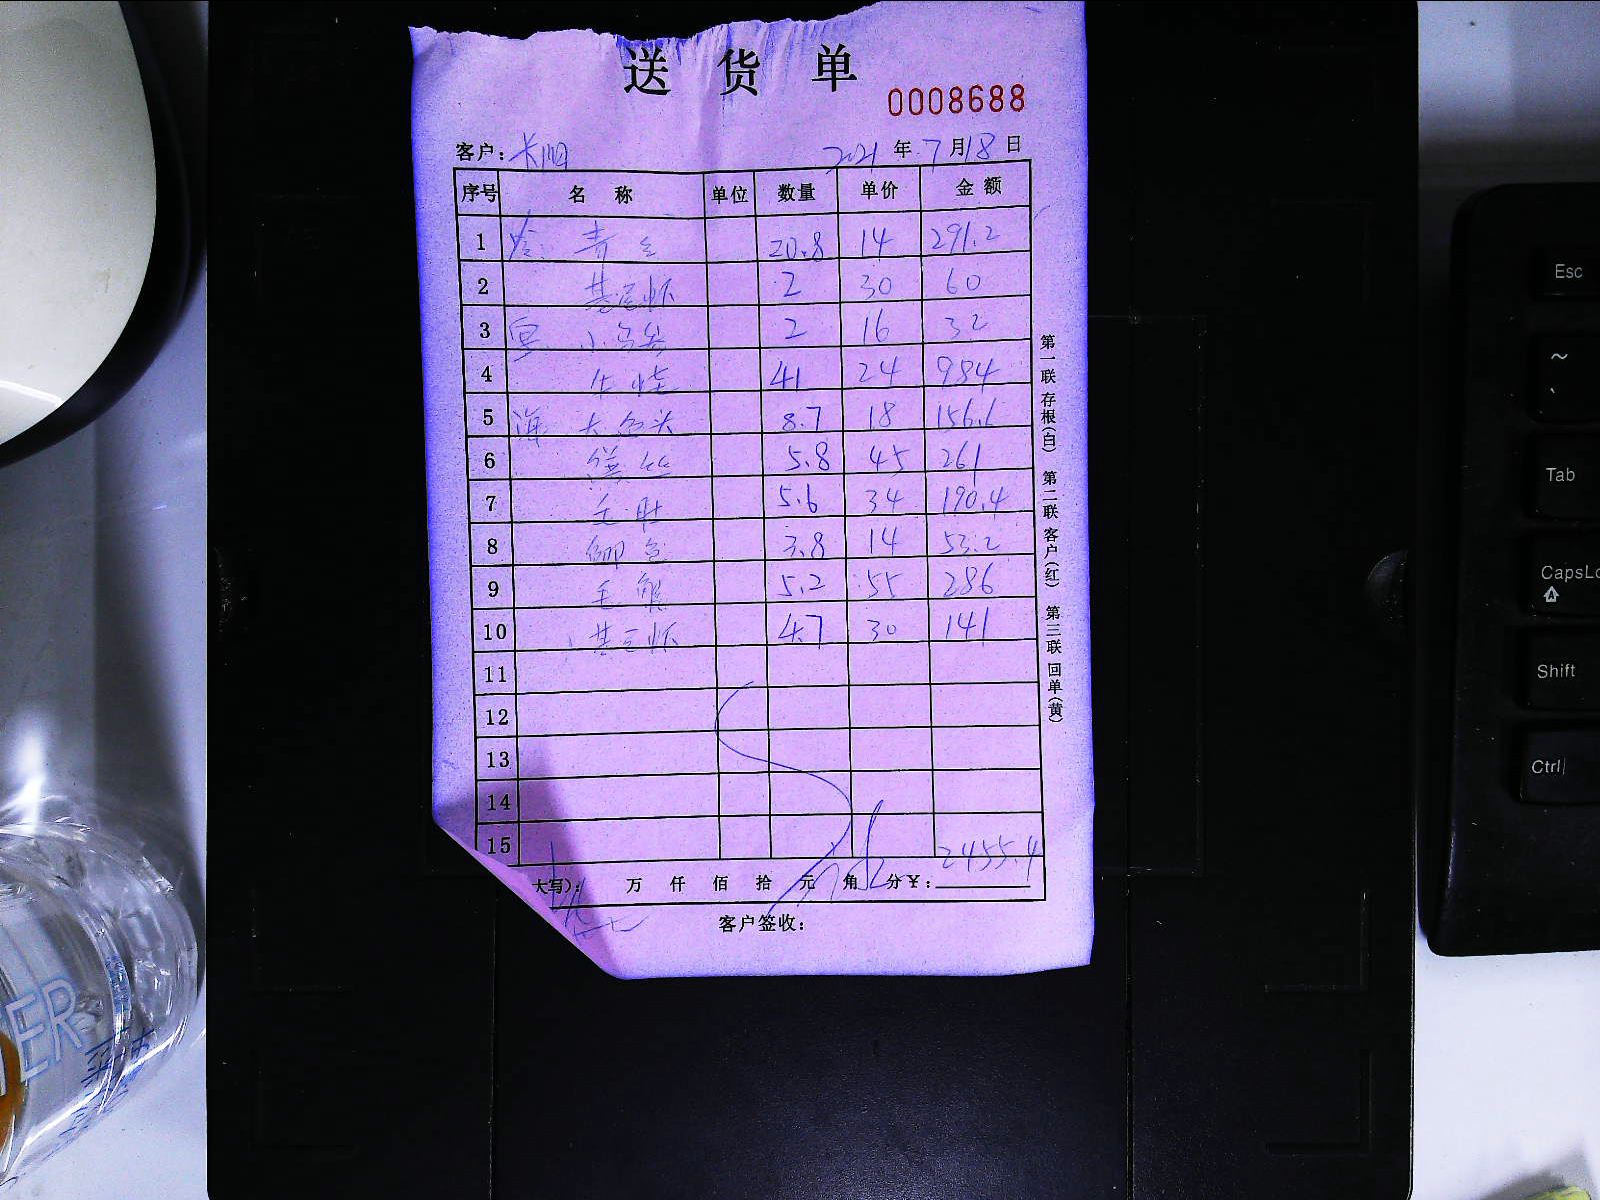 送 货 单
0008688
客户: 长阳 2021 年 7 月 18 日
序号 名 称 单位 数量 单价 金 额
1 20.8 14 291.2
2 基围虾 2 30 60
3 2 16 32
4 牛蛙 41 24 984
5 海 大鱼头 8.7 18 156.6
6 5.8 45 261
7 毛肚 5.6 34 190.4
8 鲫鱼 3.8 14 53.2
9 毛蟹 5.2 55 286
10 基围虾 4.7 30 141
11
12
13
14
15 2455.4
大写): 万 仟 佰 拾 元 角 分 ¥:
客户签收:
第一联 存根(白) 第二联 客户(红) 第三联 回单(黄)
Esc
~
Tab
CapsLo
Shift
Ctrl
ER